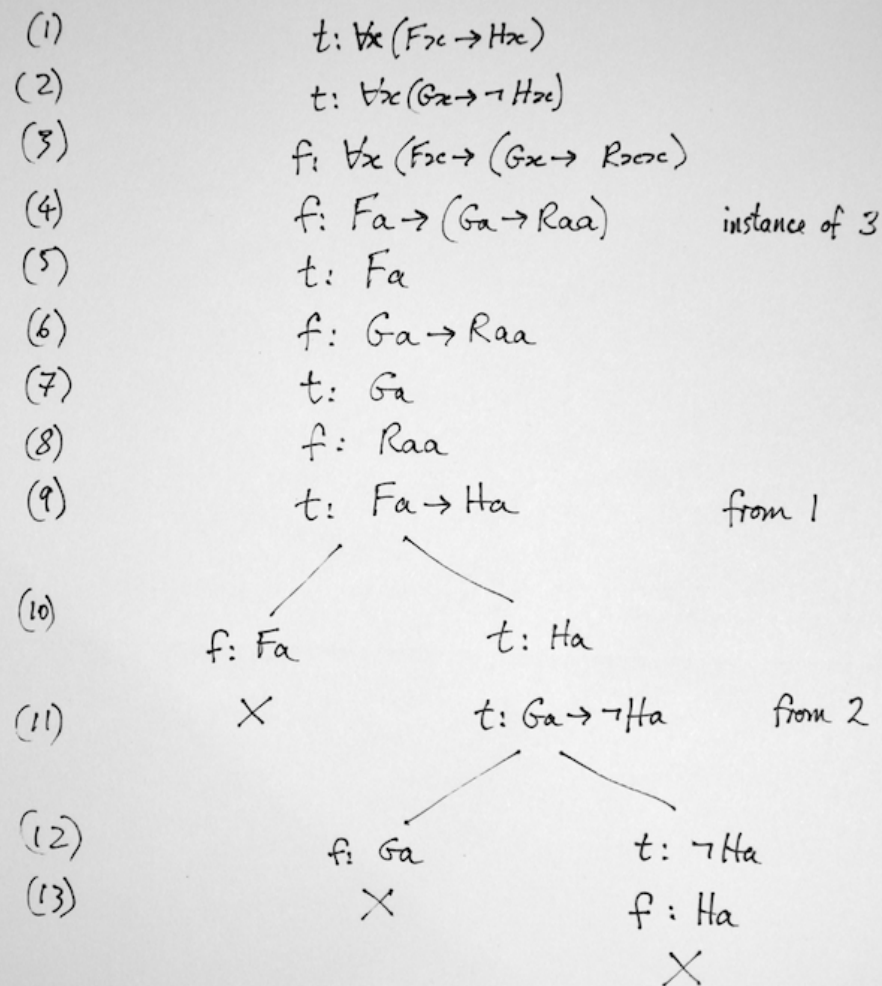 (1) t: ∀x (Fx → Hx)
(2) t: ∀x (Gx → ¬ Hx)
(3) f: ∀x (Fx → (Gx → Rxx)
(4) f: Fa → (Ga → Raa) instance of 3
(5) t: Fa
(6) f: Ga → Raa
(7) t: Ga
(8) f: Raa
(9) t: Fa → Ha from 1
(10) f: Fa t: Ha
(11) X t: Ga → ¬Ha from 2
(12) f: Ga t: ¬Ha
(13) X f: Ha
X